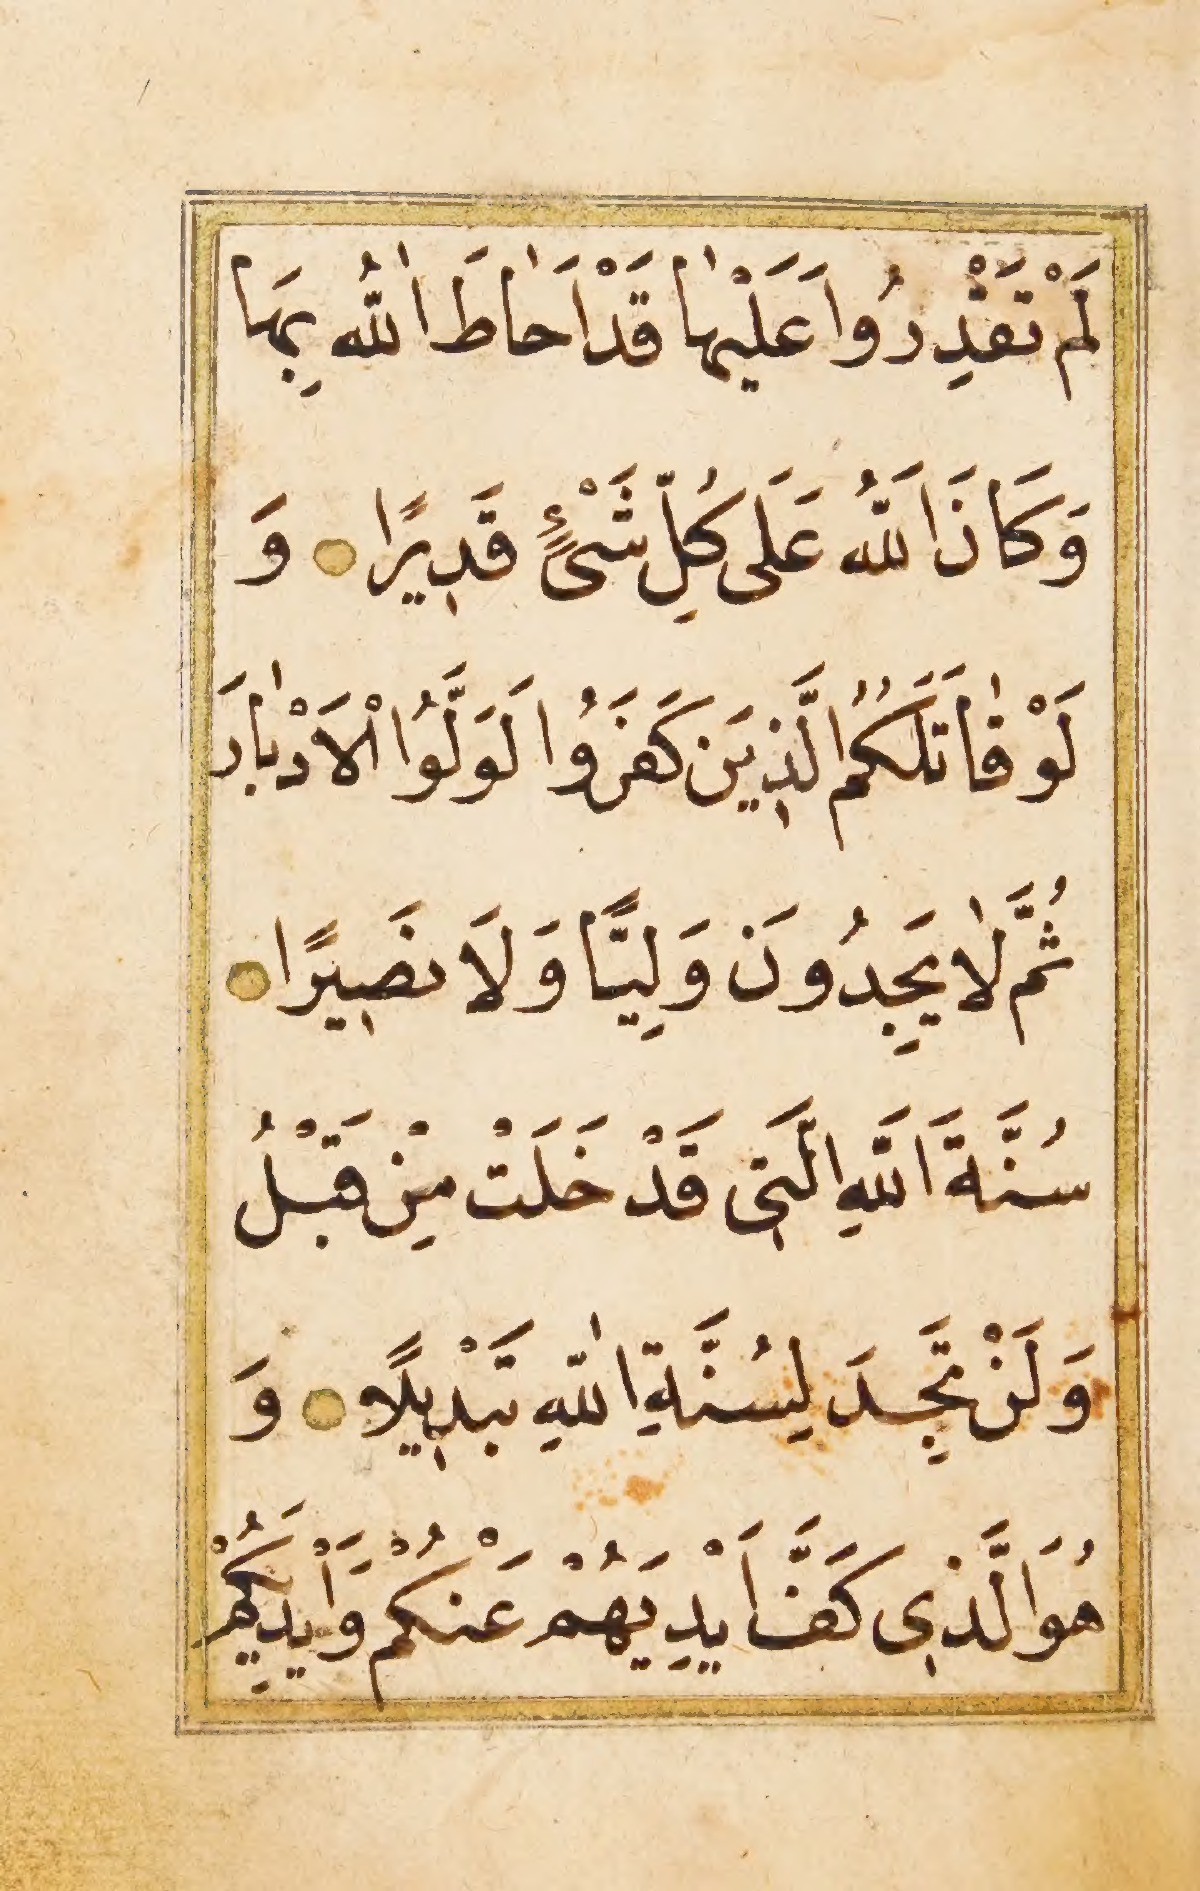 لَمْ تَقْدِرُوا عَلَيْهٰا قَدْ اَحٰاطَ اللّٰهُ بِهَا
وَكَانَ اللَّهُ عَلَى كُلِّ شَىْءٍ قَدِيرًا وَ
لَوْ قٰاتَلَكُمُ الَّذِينَ كَفَرُوا لَوَلَّوُا الْاَدْبٰارَ
ثُمَّ لٰا يَجِدُونَ وَلِيًّا وَلَا نَصِيرًا
سُنَّةَ اللَّهِ الَّتِى قَدْ خَلَتْ مِنْ قَبْلُ
وَلَنْ تَجِدَ لِسُنَّةِ اللّٰهِ تَبْدِيلًا وَ
هُوَ الَّذِى كَفَّ اَيْدِيَهُمْ عَنْكُمْ وَاَيْدِيَكُمْ